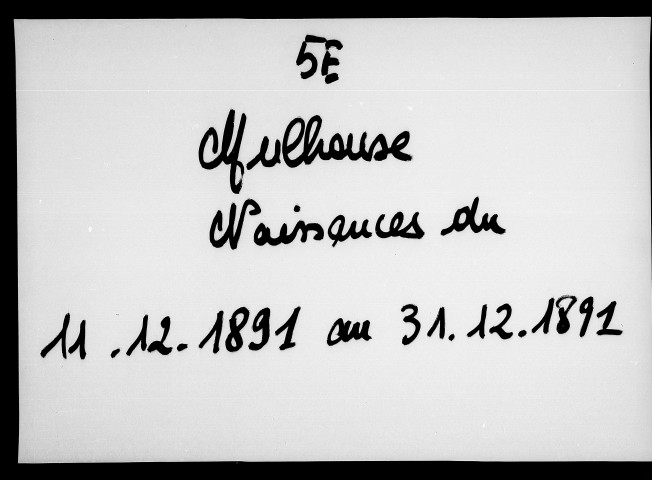 5E
Mulhouse
Naissances du
11.12.1891 au 31.12.1891